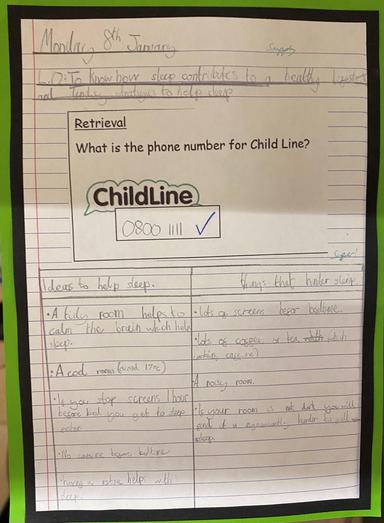 Monday 8th January
L.O: To know how sleep contributes to a healthy
and strategies to help sleep
Retrieval
What is the phone number for Child Line?
ChildLine
0800 1111
Ideas to help sleep.
things that hinder sleep
• A tidy room helps to
calm the brain which help
sleep.
• A cool room (around 17°c)
• If you stop screens 1 hour
before bed you get to sleep
• No caffeine before bedtime
• having a routine helps with
sleep.
• lots of screens before bedtime.
• lots of or tea which
A noisy room.
• If your room is not dark you will
find it harder to fall
asleep.